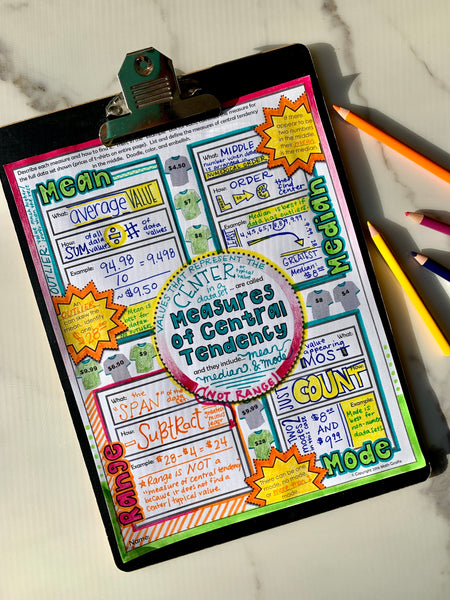 Describe each measure and how to find
measure for
the full data set shown (prices of t-shirts on entire page). List and define the measures of central tendency
in the middle. Doodle, color, and embellish!
Mean
What: average VALUE
How: SUM of all data values ÷ # of data values
Example: 94.98
10
= 9.498
~ $9.50
OUTLIER
An OUTLIER can skew the mean. Identify one: $28
Mean is best for data w/o
$6.50
$7
$8
What: MIDDLE
number when data is in
NUMERICAL ORDER
How: ORDER
L → G
then find center
Example: Median is best if data has outliers
LEAST
GREATEST
Median = $8
Median
If there appear to be two numbers in the middle, then mean is the median!
VALUES THAT REPRESENT THE
CENTER
or typical value
in a data set
... are called
Measures
of Central
Tendency
and they include mean,
median, & mode
(NOT RANGE)
$9.99
$9.50
$8
$4
$9.99
$28
What: The "SPAN" of the data
How: Subtract
Example: $28 - 4 = $24
★ Range is NOT a
"measure of central tendency"
because it does not find a
center/typical value.
Range
What:
value
appearing
MOST
How:
JUST COUNT
Example:
TWO modes
$8.00
AND
$9.99
Mode is best for non-num. data sets
Mode
There can be one mode, no mode, or more than 1 mode
Name:
Copyright 2018 Math Giraffe